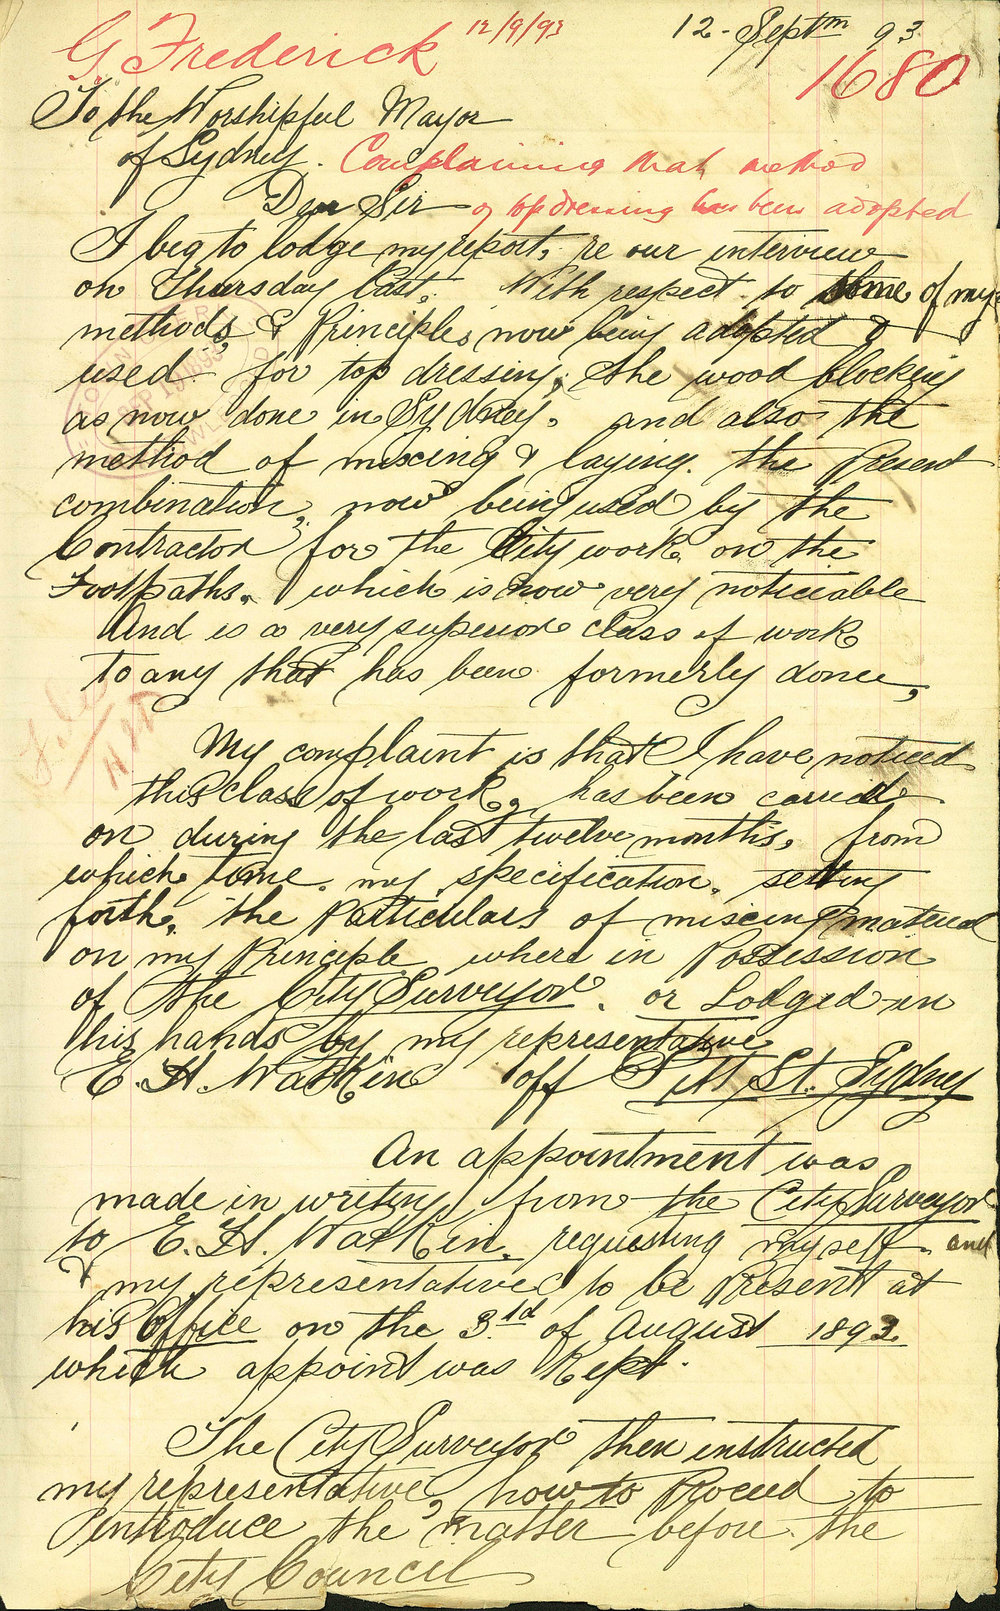 G Frederick 12/9/93 12 - Septm 93
1680
To the Worshipful Mayor
of Sydney. Complaining that method
Dear Sir of top dressing has been adopted
I beg to lodge my report, re our interview
on Thursday last. With respect to some of my
methods & Principles now being adopted &
used for top dressing, the wood blocking
as now done in Sydney. and also the
method of mixing & laying. the Present
combination, now being used by the
Contractor for the City work on the
Footpaths. which is now very noticeable
And is a very superior class of work
to any that has been formerly done,
My complaint is that I have noticed
this class of work, has been carried
on during the last twelve months, from
which time my specification. setting
forth, the Particulars of mixing material
on my Principle where in Possession
of the City Surveyor. or Lodged in
his hands by my representative
E. H. Watkin off Pitt St. Sydney
An appointment was
made in writing from the City Surveyor
to E. H. Watkin. requesting myself and
& my representative to be Present at
his office on the 3.rd of August 1892
which appoint was Kept.
The City Surveyor then instructed
my representative, how to Proceed to
introduce the matter before the
City Council